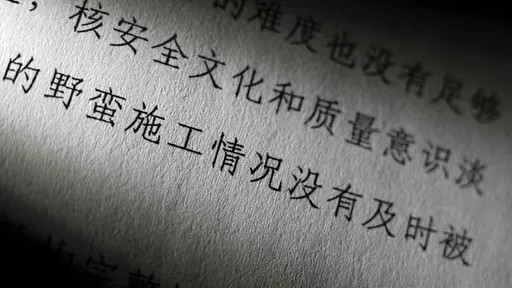 的难度也没有足够
,核安全文化和质量意识淡
的野蛮施工情况没有及时被